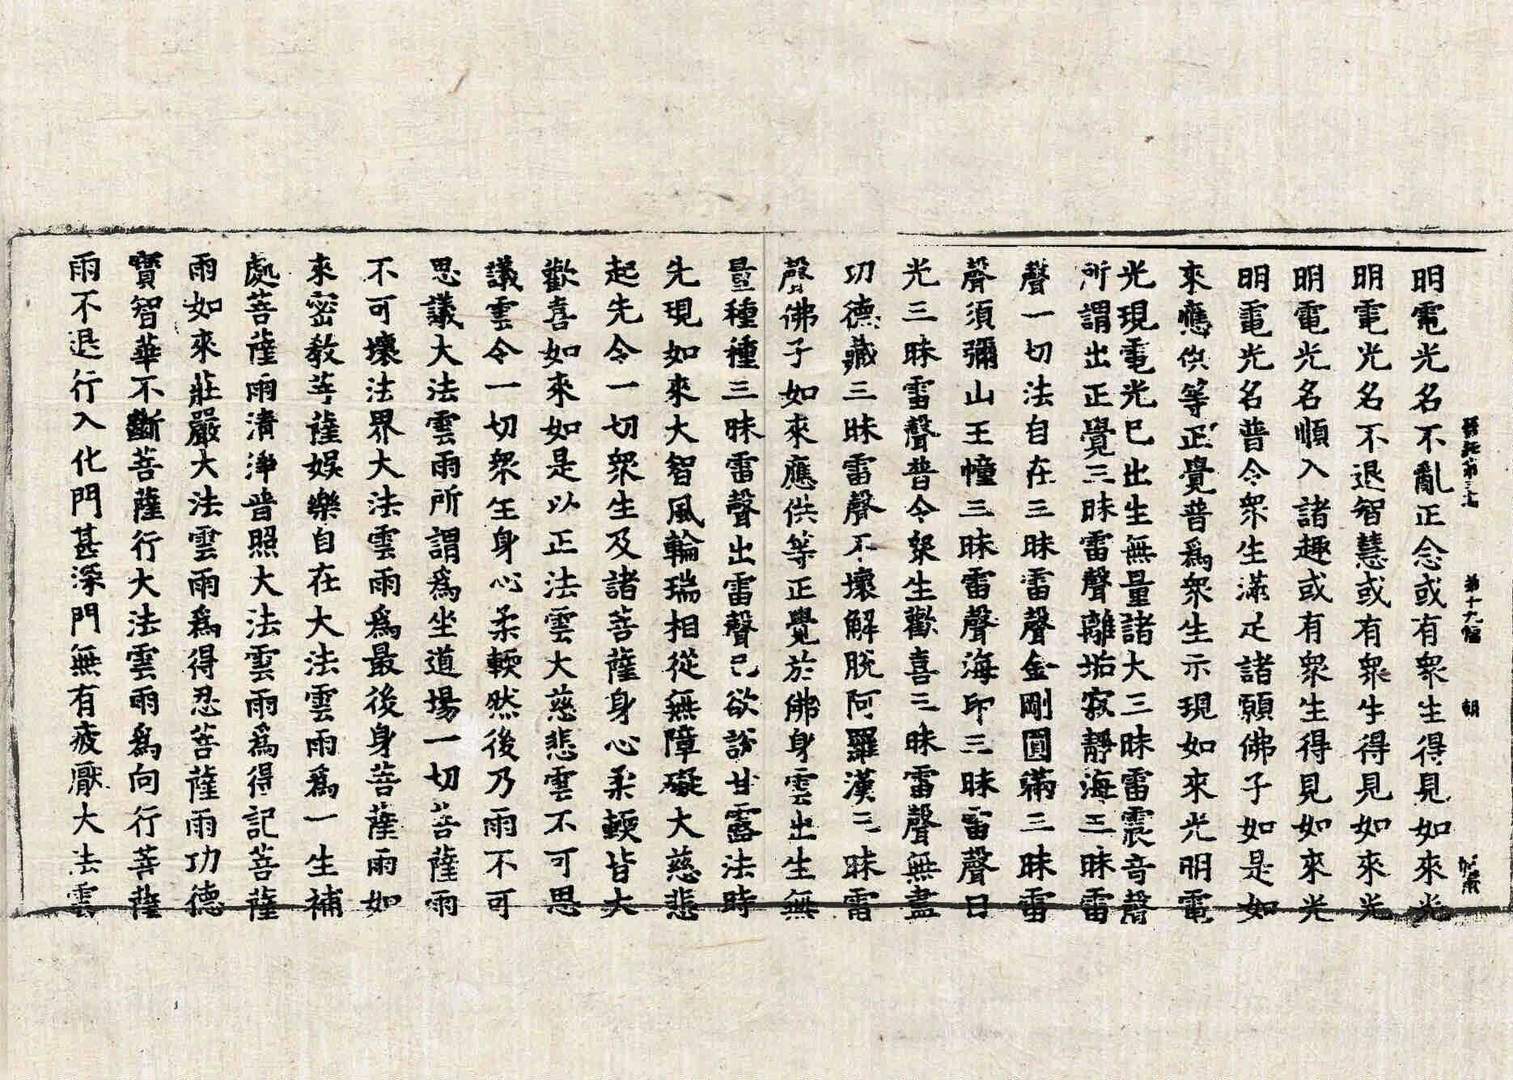 明電光名不亂正念或有衆生得見如來光
明電光名不退智慧或有衆生得見如來光
明電光名順入諸趣或有衆生得見如來光
明電光名普令衆生滿足諸願佛子如是如
來應供等正覺普爲衆生示現如來光明電
光現電光已出生無量諸大三昧雷震音聲
所謂出正覺三昧雷聲離垢寂靜海三昧雷
聲一切法自在三昧雷聲金剛圓滿三昧雷
聲須彌山王幢三昧雷聲海印三昧雷聲日
光三昧雷聲普令衆生歡喜三昧雷聲無盡
功德藏三昧雷聲不壞解脫阿羅漢三昧雷
聲佛子如來應供等正覺於佛身雲出生無
量種種三昧雷聲出雷聲已欲說甘露法時
先現如來大智風輪瑞相從無障礙大慈悲
起先令一切衆生及諸菩薩身心柔輭皆大
歡喜如來如是以正法雲大慈悲雲不可思
議雲令一切衆生身心柔輭然後乃雨不可
思議大法雲雨所謂爲坐道場一切菩薩雨
不可壞法界大法雲雨爲最後身菩薩雨如
來密教菩薩娛樂自在大法雲雨爲一生補
處菩薩雨清淨普照大法雲雨爲得記菩薩
雨如來莊嚴大法雲雨爲得忍菩薩雨功德
寶智華不斷菩薩行大法雲雨爲向行菩薩
雨不退行入化門甚深門無有疲厭大法雲
第十九幅
朝